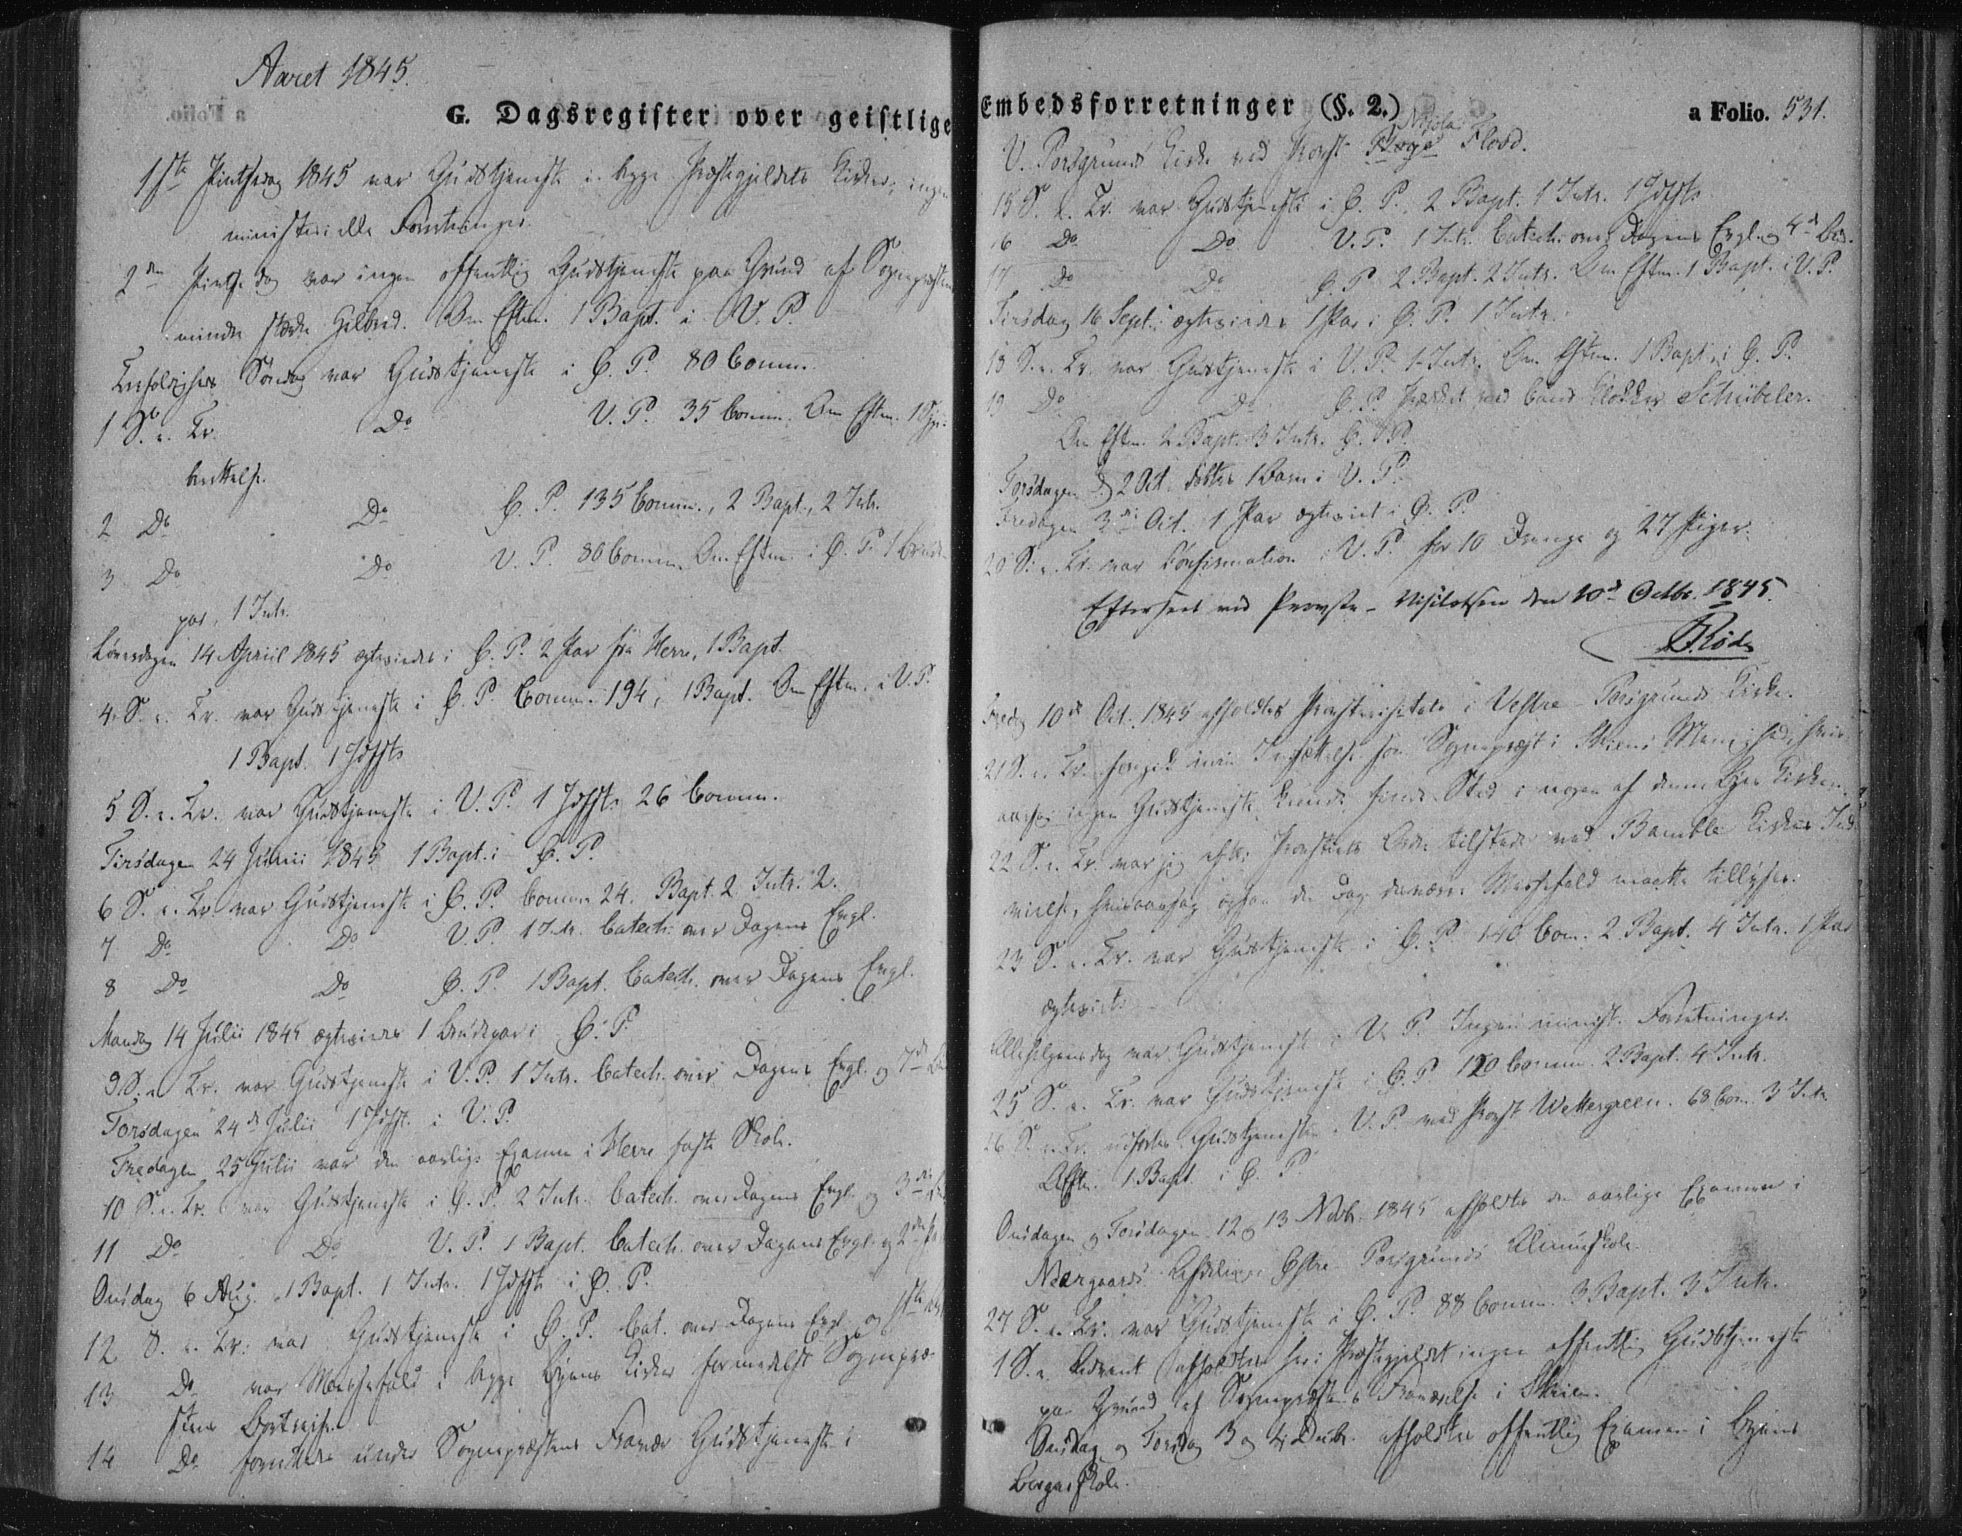 Aaret 1845.
G. Dagsregister over geistlige
1ste Pintsedag 1845 var Gudstjeneste i begge Præstegjeldets Kirker, ingen
ministerielle Forretninger.
2den Pintsedag var ingen offentlig Gudstjeneste paa Grund af Sognepræstens
mindre stærke Helbred. Om Eftm. 1 Bapt. i V. P.
Trefoldigheds Søndag var Gudstjeneste i Ø. P. 80 Comm.
1 S. e. Tr. Do V. P. 35 Comm. Om Eftm. 1 Syge-
berettelse.
2 Do Do Ø. P. 135 Comm., 2 Bapt., 2 Intr.
3 Do Do V. P. 80 Comm. Om Eftm. i Ø. P. 1 Brude-
par, 1 Intr.
Løverdagen 14 April 1845 ægteviedes i Ø. P. 2 Par fra Herre, 1 Bapt.
4. S. e. Tr. var Gudstjeneste i Ø. P. Comm. 194, 1 Bapt. Om Eftm. i V. P.
1 Bapt. 1 Jdfst.
5 S. e. Tr. var Gudstjeneste i V. P. 1 Jdfst. 26 Comm.
Tirsdagen 24 Junii 1845 1 Bapt. i Ø. P.
6 S. e. Tr. var Gudstjeneste i Ø. P. Comm. 24. Bapt. 2 Intr. 2.
7 Do Do V. P. 1 Intr. Catech. over Dagens Evgl.
8 Do Do Ø. P. 1 Bapt. Catech. over Dagens Evgl.
Mandag 14 Julii 1845 ægteviedes 1 Brudepar i Ø. P.
9 S. e. Tr. var Gudstjeneste i V. P. 1 Intr. Catech. over Dagens Evgl. og 7de
Torsdagen 24de Julii 1 Jdfst. i V. P.
Fredagen 25 Julii var den aarlige Examen i Herre faste Skole.
10 S. e. Tr. var Gudstjeneste i Ø. P. 2 Intr. Catech. over Dagens Evgl. og 3die
11 Do Do V. P. 1 Bapt. Catech. over Dagens Evgl. og 2den
Onsdag 6 Aug. 1 Bapt. 1 Intr. 1 Jdfst. i Ø. P.
12 S. e. Tr. var Gudstjeneste i Ø. P. Cat. over Dagens Evgl. og 1ste
13 Do var Messefald i begge Byens Kirker formedelst Sognepræ-
stens Bortreise.
14 Do forrettede under Sognepræstens Fravær Gudstjeneste i
Embedsforretninger (§. 2.)
a Folio. 531.
Nicolai
V. Porsgrunds Kirke ved Provst Flood.
15 S. e. Tr. var Gudstjeneste i Ø. P. 2 Bapt. 1 Intr. 1 Jdfst.
16 Do Do V. P. 1 Intr. Catech. over Dagens Evgl. og 4de
17 Do Do Ø. P. 2 Bapt. 2 Intr. Om Eftm. 1 Bapt. i V. P.
Tirsdag 16 Sept. ægteviedes 1 Par i Ø. P. 1 Intr.
18 S. e. Tr. var Gudstjeneste i V. P. 1 Intr. Om Eftm. 1 Bapt. i Ø. P.
19 Do Do Ø. P. Prædiket ved Cand. Schübeler.
Om Eftm. 2 Bapt. 3 Intr. Ø. P.
Torsdagen d. 2 Oct. døbtes 1 Barn i V. P.
Fredagen 3die Oct. 1 Par ægteviet i Ø. P.
20 S. e. Tr. var Confirmation i V. P. for 10 Drenge og 27 Piger.
Efterseet ved Provste-Visitatsen den 10de Octbr. 1845.
Rode
Fredag 10de Oct. 1845 afholdtes Provstevisitats i Vestre-Porsgrunds Kirke.
21 S. e. Tr. foregik min Indsættelse som Sognepræst i Skiens Menighed, hvis-
aarsag ingen Gudstjeneste kunde finde Sted i nogen af denne Byes Kirker.
22 S. e. Tr. var jeg efter Provstens Ordre tilstede ved Bamble Kirkes Ind-
vielse, hvisaarsag ogsaa den Dag desværre Messefald maatte tillyses.
23 S. e. Tr. var Gudstjeneste i Ø. P. 140 Com. 2 Bapt. 4 Intr. 1 Par
ægteviet.
Allehelgensdag var Gudstjeneste i V. P. Ingen minist. Forretninger.
25 S. e. Tr. var Gudstjeneste i Ø. P. 120 Comm. 2 Bapt. 4 Intr.
26 S. e. Tr. Gudstjenesten i V. P. ved Provst Wettergreen. 68 Com. 3 Intr.
Eftm. 1 Bapt. i Ø. P.
Onsdagen og Torsdagen 12 og 13 Novbr. 1845 afholdtes den aarlige Examen i
Nærgaards Afdeling i Østre Porsgrunds Almueskole.
27 S. e. Tr. var Gudstjeneste i Ø. P. 88 Comm. 3 Bapt. 3 Intr.
1 S. e. Advent afholdtes her i Præstegjeldet ingen offentlig Gudstjeneste
paa Grund af Sognepræstens Fraværelse i Skien.
Onsdag og Torsdag 3 og 4 Decbr. afholdtes offentlig Examen i Byens
Borgerskole.